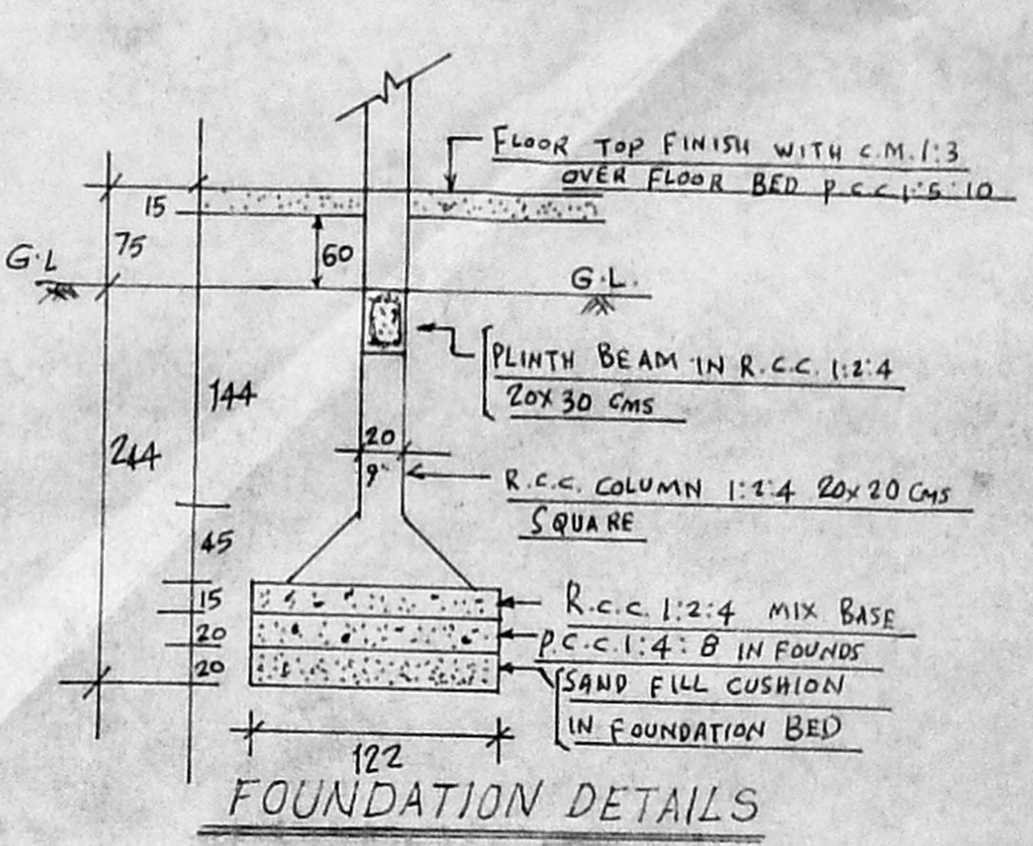 FLOOR TOP FINISH WITH C.M. 1:3
OVER FLOOR BED P.C.C 1:5:10
15
75
60
G.L
G.L.
PLINTH BEAM IN R.C.C. 1:2:4
20X 30 CMS
144
244
20
9"
R.C.C. COLUMN 1:2:4 20x20 CMS
SQUARE
45
15
R.C.C. 1:2:4 MIX BASE
20
P.C.C. 1:4:8 IN FOUNDS
20
SAND FILL CUSHION
IN FOUNDATION BED
122
FOUNDATION DETAILS